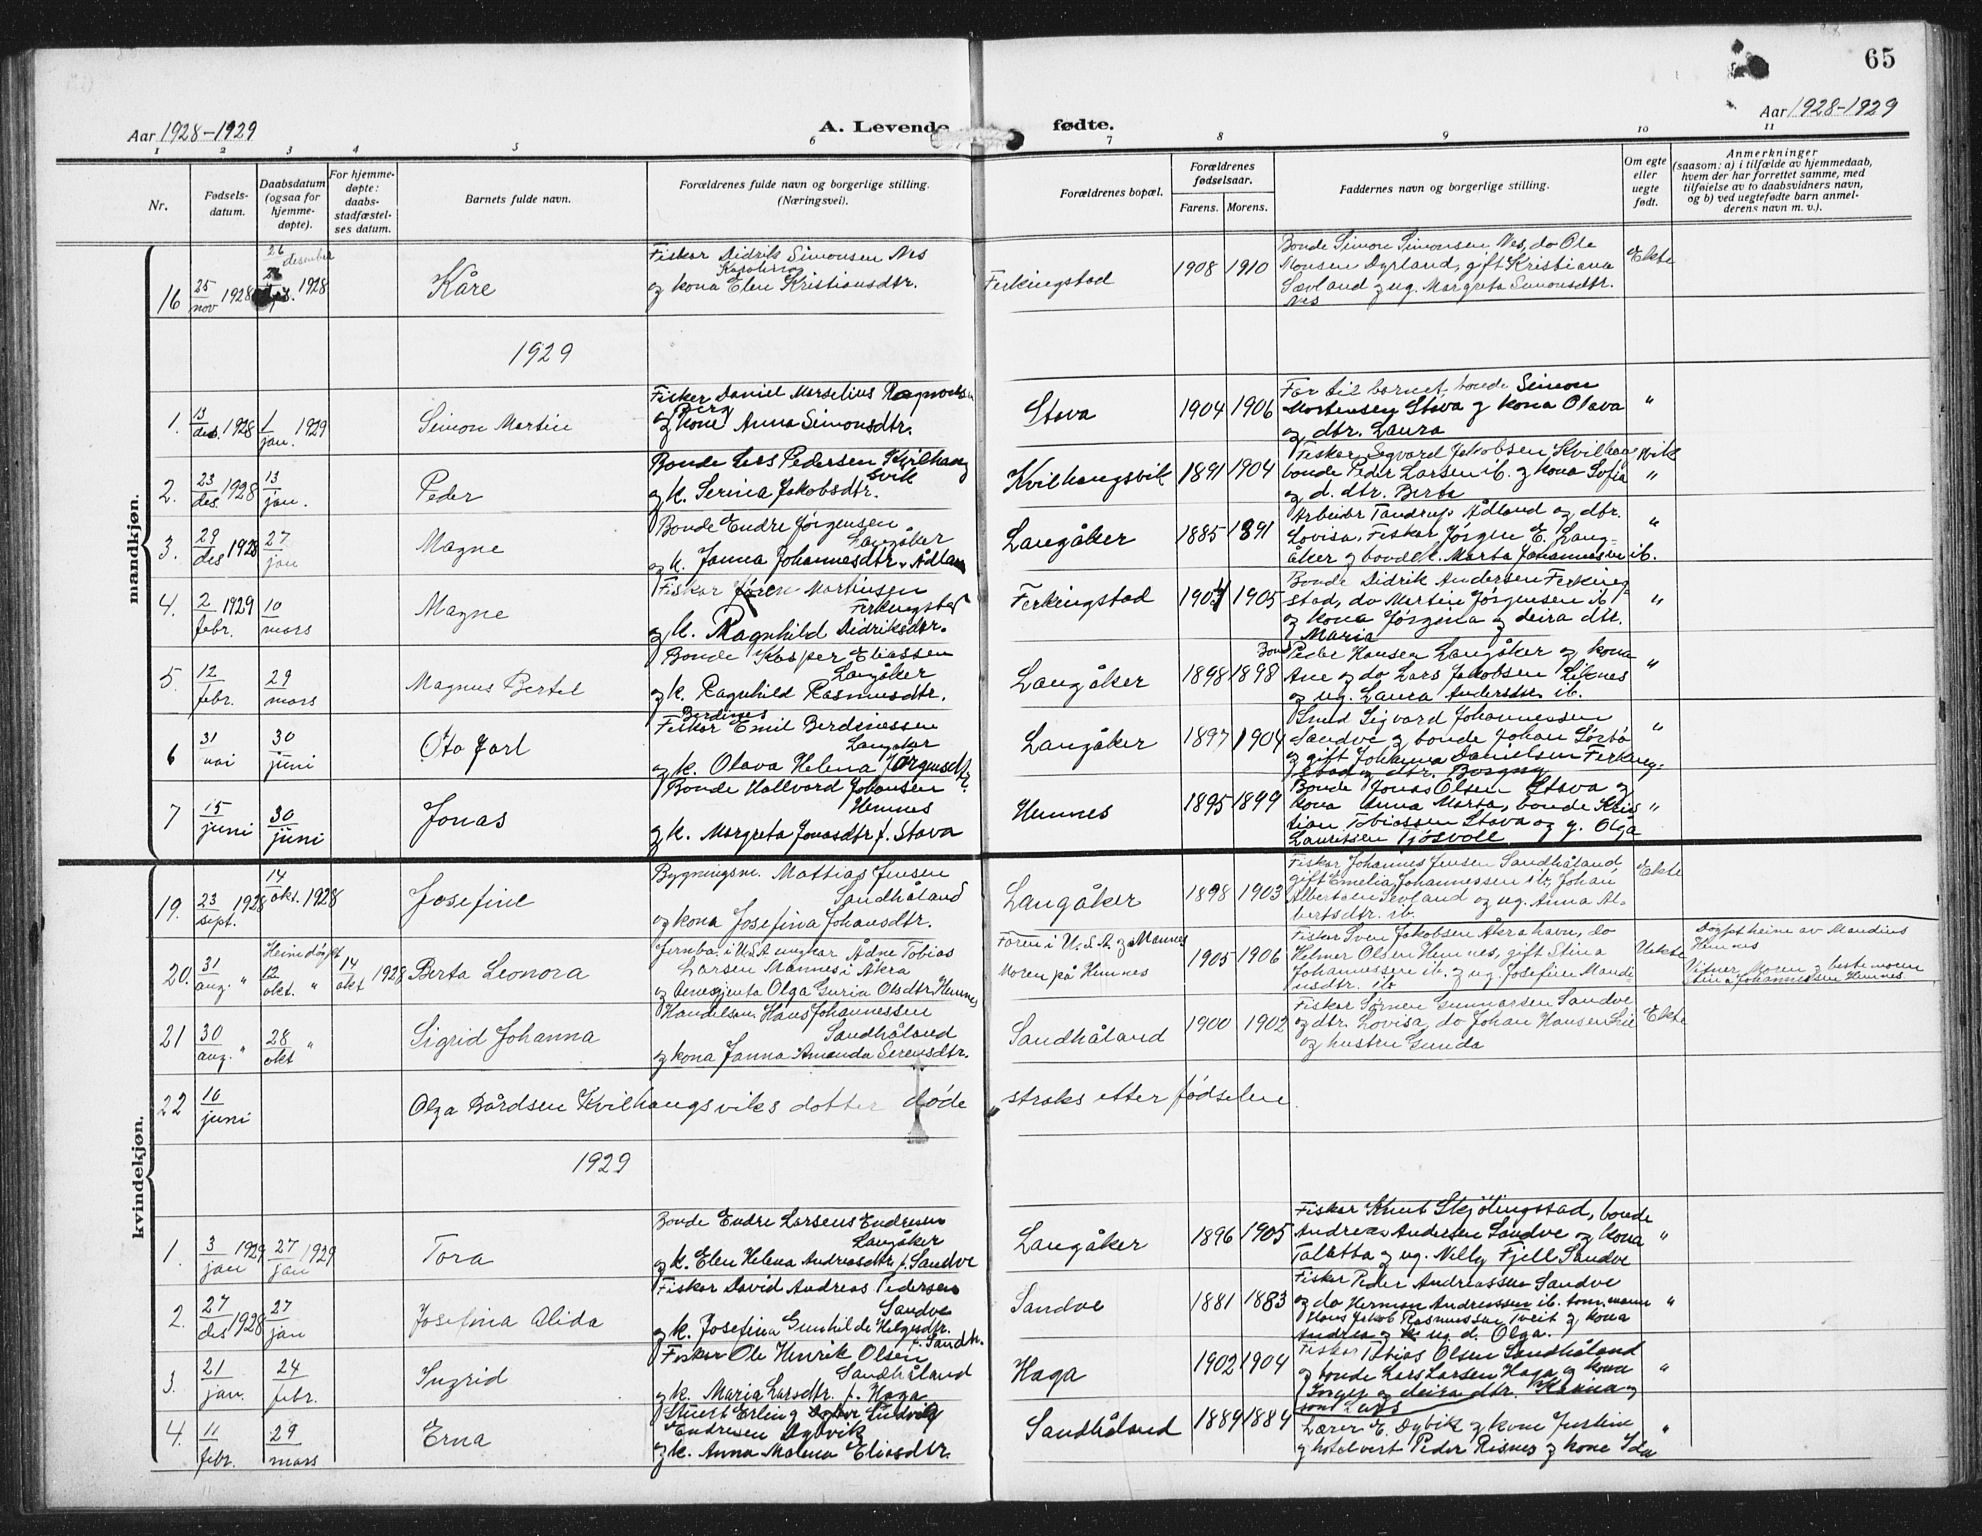 65
Aar 1928-1929
A. Levende fødte.
Aar 1928-1929
1 2 3 4 5 6 7 8 9 10 11
Nr.
Fødsels-
datum.
Daabsdatum
(ogsaa for
hjemme-
døpte).
For hjemme-
døpte:
daabs-
stadfæstel-
ses datum.
Barnets fulde navn.
Forældrenes fulde navn og borgerlige stilling.
(Næringsvei).
Forældrenes bopæl.
Forældrenes
fødselsaar.
Farens. Morens.
Faddernes navn og borgerlige stilling.
Om egte
eller
uegte
født.
Anmerkninger
(saasom: a) i tilfælde av hjemmedaab,
hvem der har forrettet samme, med
tilføielse av to daabsvidners navn,
og b) ved uegtefødte barn anmel-
derens navn m. v.).
mandkjøn.
16 25/nov 1928 26 desember 1928 Kåre
Fisker Didrik Simonsen Nes
Karolina
og kona Elen Kristiansdtr.
Ferkingstad 1908 1910
Bonde Simon Simonsen Nes, do Ole
Monsen Dyrland, gift Kristiana
Sævland og ug. Margreta Simonsdtr.
Nes
Ekte
1929
1. 13/des. 1928 1/jan. 1929 Simon Martin
Fisker Daniel Marselius
Berg
og kone Anna Simonsdtr.
Stava 1904 1906
Far til barnet, bonde Simon
Mortensen Stava og kona Olava
og dtr. Laura
"
2. 23/des. 1928 13/jan. Peder
Bonde Lars Pedersen Kvilhaug
svik
og k. Serina Jakobsdtr.
Kvilhaugsvik 1891 1904
Fisker Sigvard Jakobsen Kvilhaugsvik
bonde Peder Larsen ib. og kona Sofia
og d. dtr. Berta
"
3. 29/des 1928 27/jan Magne
Bonde Endre Jørgensen
Langåker
og k. Janna Johannesdtr. Ådland
Langåker 1885 1891
Arbeidr Tandrup Ådland og dtr.
Lovisa, Fisker Jørgen E. Lang-
åker og bondek. Marta Johannessen ib.
"
4. 2/febr. 1929 10/mars Magne
Fisker Jøren Martinsen
Ferkingstad
og k. Ragnhild Didriksdtr.
Ferkingstad 1904 1905
Bonde Didrik Andersen Ferking-
stad, do Martin Jørgensen ib
og kona Jørgina og deira dtr.
Maria
"
5. 12/febr. 29/mars Magnus Bertel
Bonde Kasper Eliassen
Langåker
og k. Ragnhild Rasmusdtr.
Langåker 1898 1898
Bonde Peder Hansen Langåker og kona
Ane og do Lars Jakobsen Liknes
og ug. Laura Andersdtr. ib.
"
6 31/mai 30/juni Oto Jarl
Berdines
Fisker Emil Berdinessen
Langåker
og k. Olava Helena Jørgensdtr.
Langåker 1897 1904
Smed Sigvard Johannessen
Sandve og bonde Johan Sørbø
og gift Johanna Danielsen Ferking-
stad og dtr. Borgny
"
7 15/juni 30/juni Jonas
Bonde Hallvard Johansen
Hemnes
og k. Margreta Jonasdtr f. Stava
Hemnes 1895 1899
Bonde Jonas Olsen Stava og
kona Anna Marta, bonde Kris
tian Tobiassen Stava og g. Olga
Lauritsen Tjøsvoll
"
kvindekjøn.
19. 23/sept. 1928 14/okt. 1928 Josefine
Bygningsm. Mattias Jensen
Sandhåland
og kona Josefina Johansdtr.
Langåker 1898 1903
Fisker Johannes Jensen Sandhåland
gift Emelia Johannessen ib, Johan
Albertsen Sevland og ug. Anna Al-
bertsdtr. ib.
Ekte
20. 31/aug. " Heimdøypt 12/okt. " 14/okt 1928 Berta Leonora
Jernba. i U.S.A ungkar Ådne Tobias
Larsen Mannes i Åkra
og Olga Guria Olsdtr Hemnes
Faren i U.S.A. og Mannes
Moren på Hemnes
1905 1906
Fisker Sven Jakobsen Åkrahavn, do
Helmer Olsen Hemnes, gift Stina
Johannessen ib. og ug. Josefine Maudi-
usdtr. ib
Uekte
Døypt heime av Maudius
Hemnes
Vitner, Moren og bestemoren
Stina Johannessen Hemnes
21 30/aug. " 28/okt " Sigrid Johanna
Handelsm. Hans Johannessen
Sandhåland
og kona Janna Amanda Serensdtr.
Sandhåland 1900 1902
Fisker Sørnen Gunnarsen Sandve
og dtr. Lovisa, do Johan Hansen Lie
og hustru Gunda
Ekte
22 10/juni Olga Bårdsen Kvilhaugsviks dotter døde straks etter fødselen
1929
1. 3/jan 1929 27/jan 1929 Tora
Bonde Endre Larsens Endresen
Langåker
og k. Elen Helena Andreasdtr f. Sandve
Langåker 1896 1905
Fisker Knut Skjølingstad, bonde
Andreas Andersen Sandve og kona
Taletta og ug. Nelly Fjell Sandve
"
2. 27/des 1928 27/jan Josefina Alida
Fisker David Andreas Pedersen
Sandve
og k. Josefina Gunhilde Helgesdtr.
f. Sandh.
Sandve 1881 1883
Fisker Peder Andreassen Sandve
og do Herman Andreassen ib. tom.mann
Hans Jakob Rasmussen Tveit og kona
Andrea og ug. d. Olga.
"
3. 21/jan. 24/febr. Ingrid
Fisker Ole Henrik Olsen
Sandhåland
og k. Maria Larsdtr. f. Haga
Haga 1902 1904
Fisker Tobias Olsen Sandhåland
og bonde Lars Larsen Haga og kona
Inger og deira dtr. Karina og
son Lars
"
4. 11/febr. 29/mars Erna
Stuert Erling Ludvig
Endresen Dybvik
og k. Anna Malena Eliasdtr.
Sandhåland 1889 1884
Lærer E. Dybvik og kone Justine
og hotelvert Peder Risnes og kone Ida
"